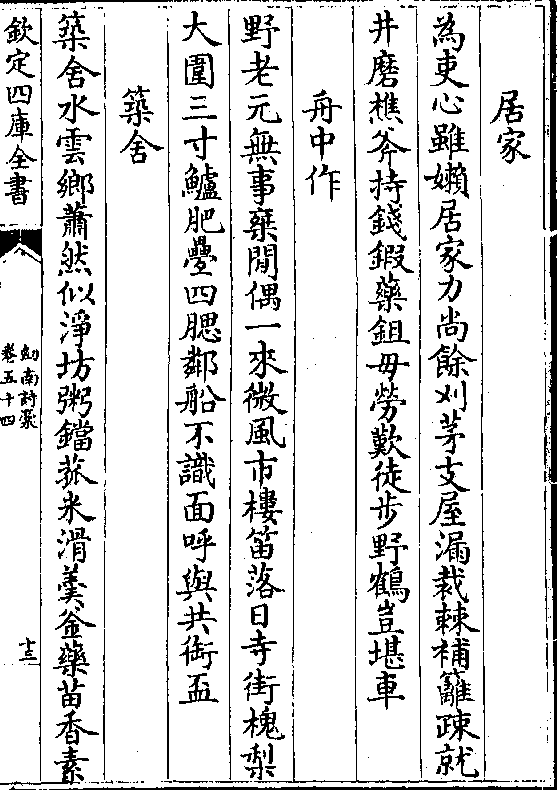 居家
為吏心雖嬾居家力尚餘刈茅支屋漏栽棘補籬疎就
井磨樵斧持錢鍜藥鉏毋勞歎徒步野鶴豈堪車
舟中作
野老元無事椉閒偶一來微風市樓笛落日寺街槐梨
大圍三寸鱸肥疊四腮鄰船不識面呼與共銜盃
築舍
築舍水雲鄉蕭然似淨坊粥鐺菰米滑羮釡藥苗香素
欽定四庫全書
劎南詩藁
卷五十四
十三